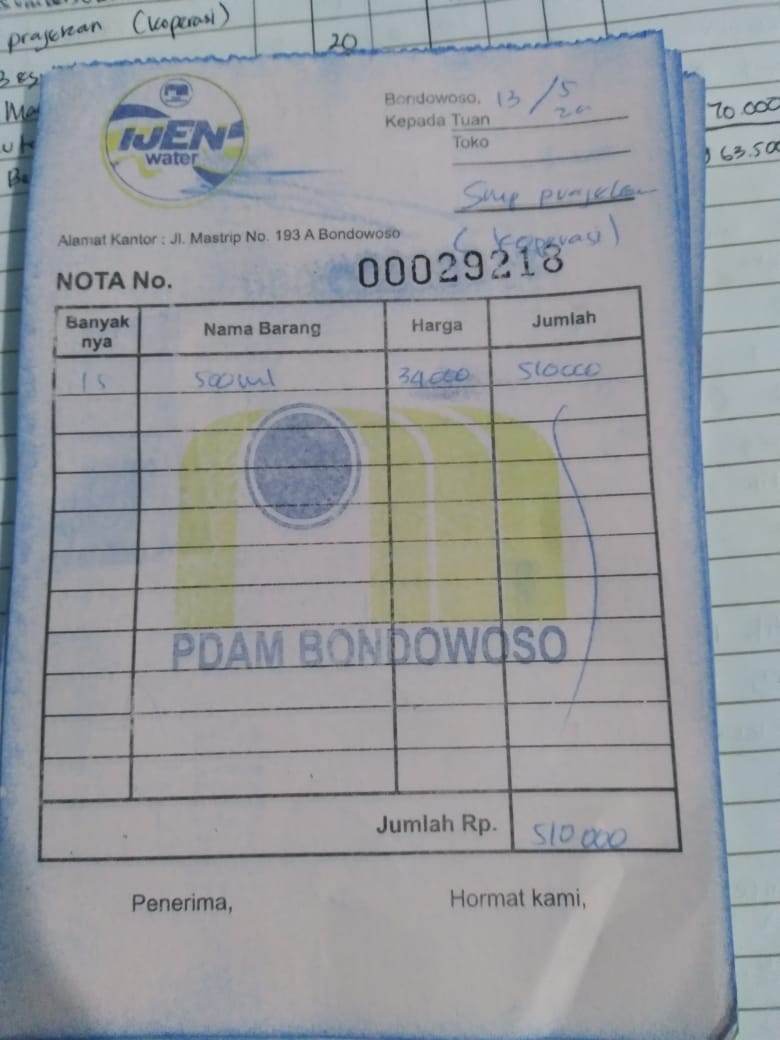 prajekan (Koperasi)
20
70.000
63.500
IJEN
water
Bondowoso, 13/5
20
Kepada Tuan
Toko
Smp prajekan
(koperasi)
Alamat Kantor : Jl. Mastrip No. 193 A Bondowoso
NOTA No. 00029218
Banyak nya Nama Barang Harga Jumlah
15 500 ml 34.000 510000
PDAM BONDOWOSO
Jumlah Rp. 510.000
Penerima, Hormat kami,